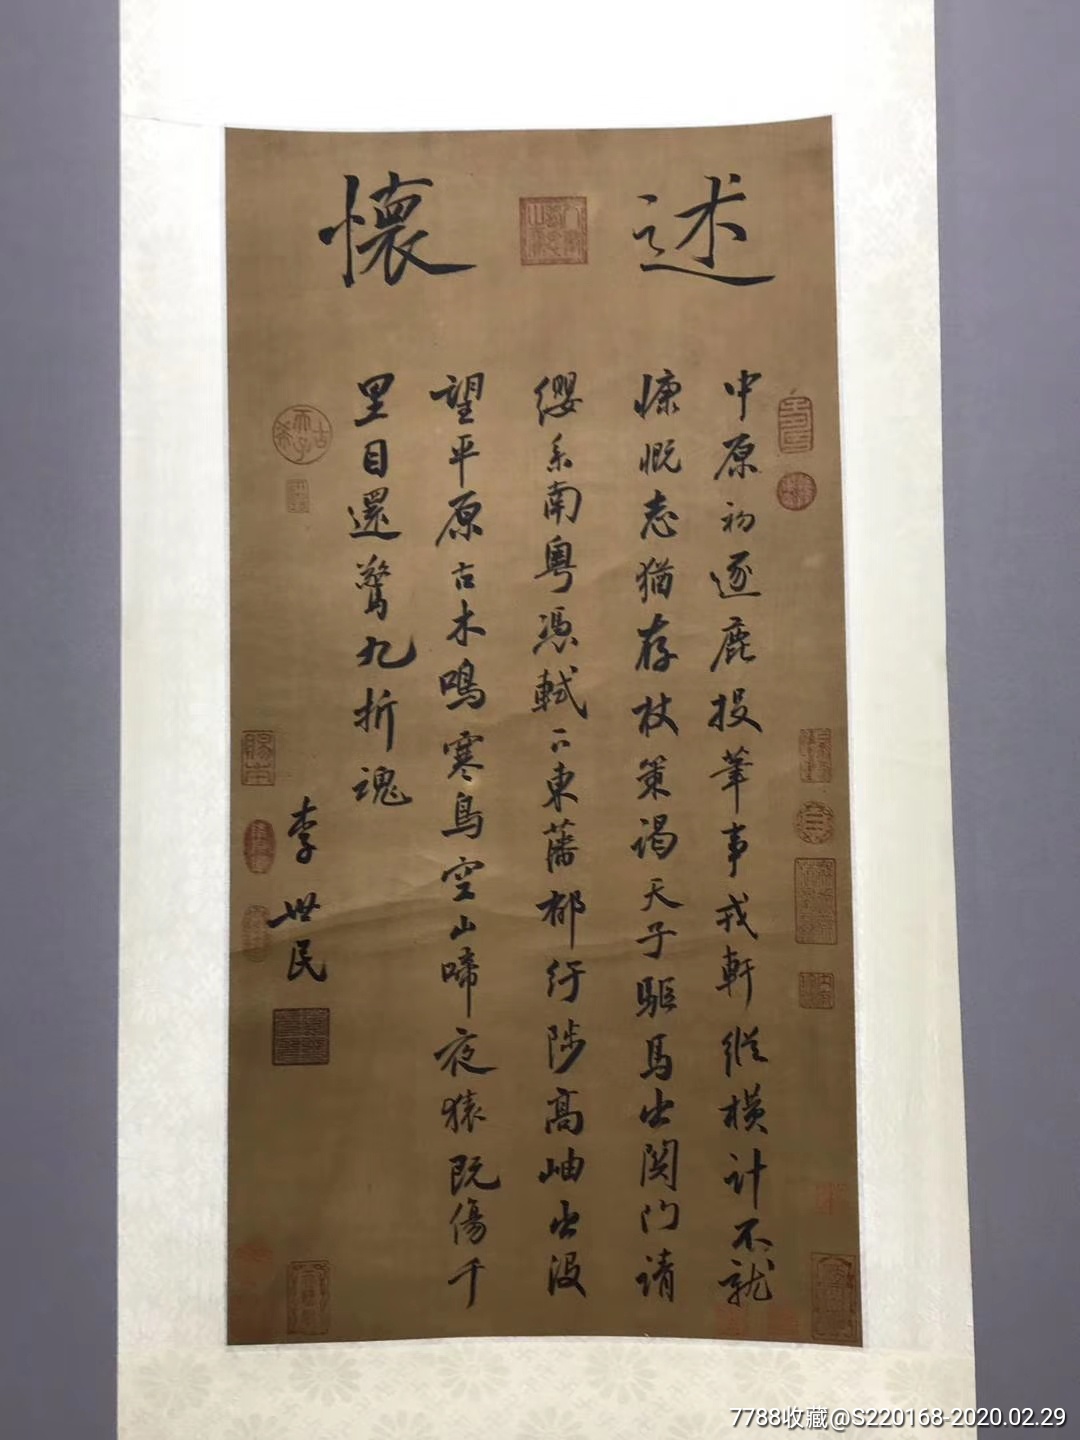 述懷
中原初逐鹿投筆事戎軒縱橫計不就
慷慨志猶存杖策谒天子驅馬出関门请
纓系南粤憑軾下東藩郁纡陟高岫出没
望平原古木鳴寒鳥空山啼夜猿既傷千
里目還驚九折魂
李世民
7788收藏@S220168-2020.02.29